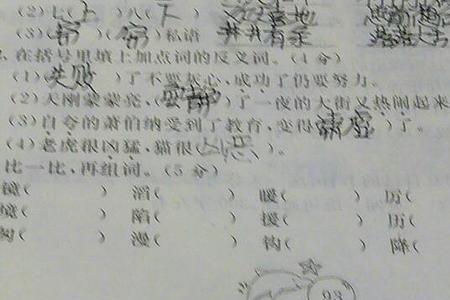 (2)七(上)八(下)
(3)(窃)(窃)私语 井井有条
在括号里填上加点词的反义词。(4分)
(1)(失败)了不要灰心,成功了仍要努力。
(2)天刚蒙蒙亮,()了一夜的大街又热闹起来
(3)自夸的萧伯纳受到了教育,变得(谦虚)了。
(4)老虎很凶猛,猫很()。
比一比,再组词。(5分)
镜() 滔() 暖() 厉(
境() 陷() 援() 历(
() 漫() 钩() 降(
93